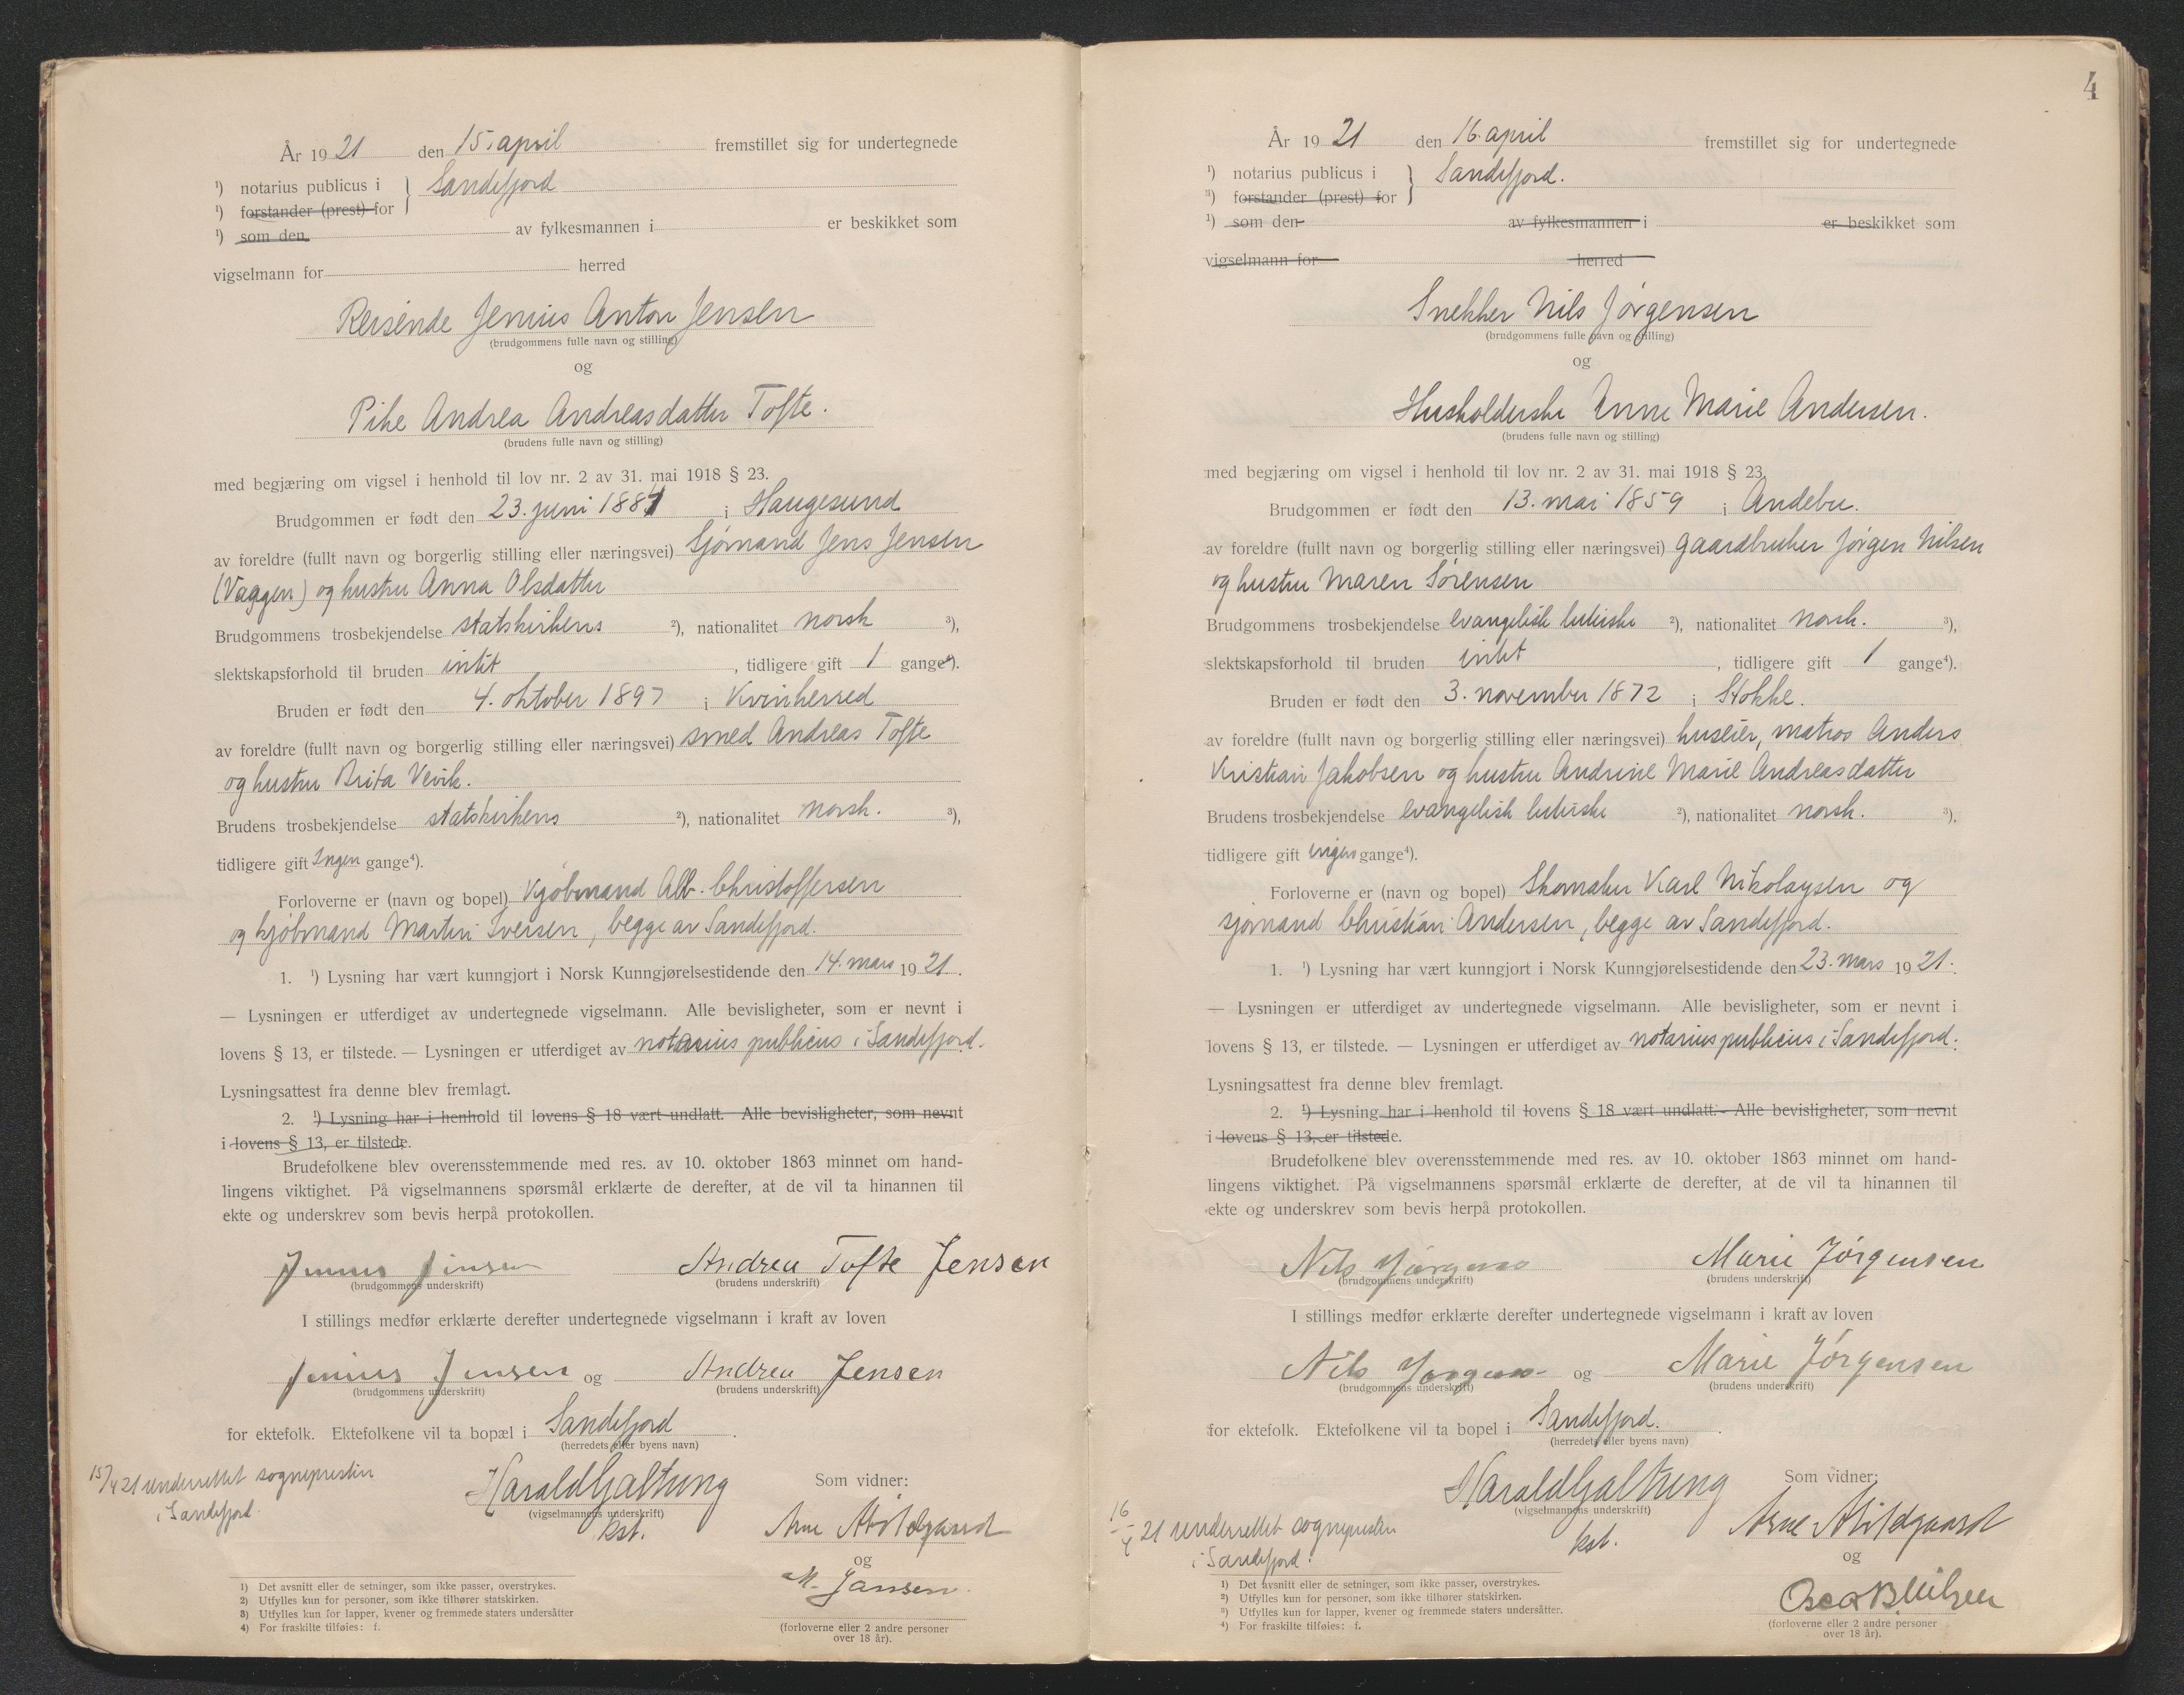 År 1921 den 15. april fremstillet sig for undertegnede
¹) notarius publicus i } Sandefjord
¹) forstander (prest) for
¹) som den av fylkesmannen i er beskikket som
vigselmann for herred
Reisende Jenius Anton Jensen
(brudgommens fulle navn og stilling)
og
Pike Andrea Andreasdatter Tofte.
(brudens fulle navn og stilling)
med begjæring om vigsel i henhold til lov nr. 2 av 31. mai 1918 § 23.
Brudgommen er født den 23. juni 1881 i Haugesund
av foreldre (fullt navn og borgerlig stilling eller næringsvei) Sjømand Jens Jensen
(Vaagen) og hustru Anna Olsdatter
Brudgommens trosbekjendelse statskirkens ²), nationalitet norsk ³),
slektskapsforhold til bruden intet , tidligere gift 1 gange⁴).
Bruden er født den 4. oktober 1897 i Kvinherred
av foreldre (fullt navn og borgerlig stilling eller næringsvei) smed Andreas Tofte
og hustru Brita Vevik.
Brudens trosbekjendelse statskirkens ²), nationalitet norsk. ³),
tidligere gift Ingen gange⁴).
Forloverne er (navn og bopel) Kjøbmand Alb. Christoffersen
og kjøbmand Martin Iversen, begge av Sandefjord.
1. ¹) Lysning har vært kunngjort i Norsk Kunngjørelsestidende den 14. mars 1921.
— Lysningen er utferdiget av undertegnede vigselmann. Alle bevisligheter, som er nevnt i
lovens § 13, er tilstede. — Lysningen er utferdiget av notarius publicus i Sandefjord.
Lysningsattest fra denne blev fremlagt.
2. ¹) Lysning har i henhold til lovens § 18 vært undlatt. Alle bevisligheter, som nevnt
i lovens § 13, er tilstede.
Brudefolkene blev overensstemmende med res. av 10. oktober 1863 minnet om hand-
lingens viktighet. På vigselmannens spørsmål erklærte de derefter, at de vil ta hinannen til
ekte og underskrev som bevis herpå protokollen.
Jenius Jensen Andrea Tofte Jensen
(brudgommens underskrift) (brudens underskrift)
I stillings medfør erklærte derefter undertegnede vigselmann i kraft av loven
Jenius Jensen og Andrea Jensen
(brudgommens underskrift) (brudens underskrift)
for ektefolk. Ektefolkene vil ta bopæl i Sandefjord.
(herredets eller byens navn)
15/4 21 underrettet sognepresten
i Sandefjord.
Harald Galtung Som vidner:
(vigselmannens underskrift)
kst. Arne Abildgaard
og
M. Jansen.
(forloverne eller 2 andre personer
over 18 år).
1) Det avsnitt eller de setninger, som ikke passer, overstrykes.
2) Utfylles kun for personer, som ikke tilhører statskirken.
3) Utfylles kun for lapper, kvener og fremmede staters undersåtter
4) For fraskilte tilføies: f.
4
År 1921 den 16. april fremstillet sig for undertegnede
¹) notarius publicus i } Sandefjord.
¹) forstander (prest) for
¹) som den av fylkesmannen i er beskikket som
vigselmann for herred
Snekker Nils Jørgensen
(brudgommens fulle navn og stilling)
og
Husholderske Anne Marie Andersen.
(brudens fulle navn og stilling)
med begjæring om vigsel i henhold til lov nr. 2 av 31. mai 1918 § 23.
Brudgommen er født den 13. mai 1859 i Andebu.
av foreldre (fullt navn og borgerlig stilling eller næringsvei) gaardbruker Jørgen Nilsen
og hustru Maren Sørensen
Brudgommens trosbekjendelse evangelisk luterske ²), nationalitet norsk. ³),
slektskapsforhold til bruden intet , tidligere gift 1 gange⁴).
Bruden er født den 3. november 1872 i Stokke.
av foreldre (fullt navn og borgerlig stilling eller næringsvei) huseier, matros Anders
Kristian Jakobsen og hustru Andrine Marie Andreasdatter
Brudens trosbekjendelse evangelisk luterske ²), nationalitet norsk. ³),
tidligere gift ingen gange⁴).
Forloverne er (navn og bopel) Skomaker Karl Nikolaysen og
sjømand Christian Andersen, begge av Sandefjord.
1. ¹) Lysning har vært kunngjort i Norsk Kunngjørelsestidende den 23. mars 1921.
— Lysningen er utferdiget av undertegnede vigselmann. Alle bevisligheter, som er nevnt i
lovens § 13, er tilstede. — Lysningen er utferdiget av notarius publicus i Sandefjord.
Lysningsattest fra denne blev fremlagt.
2. ¹) Lysning har i henhold til lovens § 18 vært undlatt. Alle bevisligheter, som nevnt
i lovens § 13, er tilstede.
Brudefolkene blev overensstemmende med res. av 10. oktober 1863 minnet om hand-
lingens viktighet. På vigselmannens spørsmål erklærte de derefter, at de vil ta hinannen til
ekte og underskrev som bevis herpå protokollen.
Nils Jørgensen Marie Jørgensen
(brudgommens underskrift) (brudens underskrift)
I stillings medfør erklærte derefter undertegnede vigselmann i kraft av loven
Nils Jørgensen og Marie Jørgensen
(brudgommens underskrift) (brudens underskrift)
for ektefolk. Ektefolkene vil ta bopel i Sandefjord.
(herredets eller byens navn)
16/4 21 underrettet sognepresten
i Sandefjord.
Harald Galtung Som vidner:
(vigselmannens underskrift)
kst. Arne Abildgaard
og
Oscar B Nilsen
(forloverne eller 2 andre personer
over 18 år).
¹) Det avsnitt eller de setninger, som ikke passer, overstrykes.
²) Utfylles kun for personer, som ikke tilhører statskirken.
³) Utfylles kun for lapper, kvener og fremmede staters undersåtter.
⁴) For fraskilte tilføies: f.